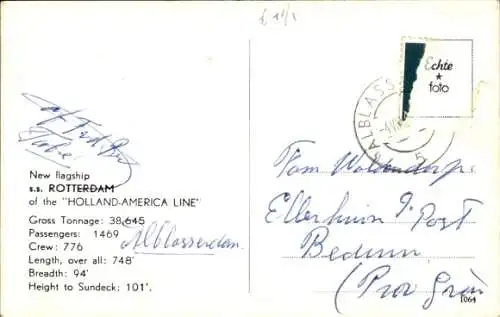 Echte
★
foto
ALBLASS
5
New flagship
s.s. ROTTERDAM
of the "HOLLAND-AMERICA LINE"
Gross Tonnage: 38,645
Passengers: 1469
Crew: 776
Length, over all: 748'
Breadth: 94'
Height to Sundeck: 101'.
Alblasserdam
Fam Woldendorp
Ellerhuizen p. Post
Bedum
(Prov Gron
1064